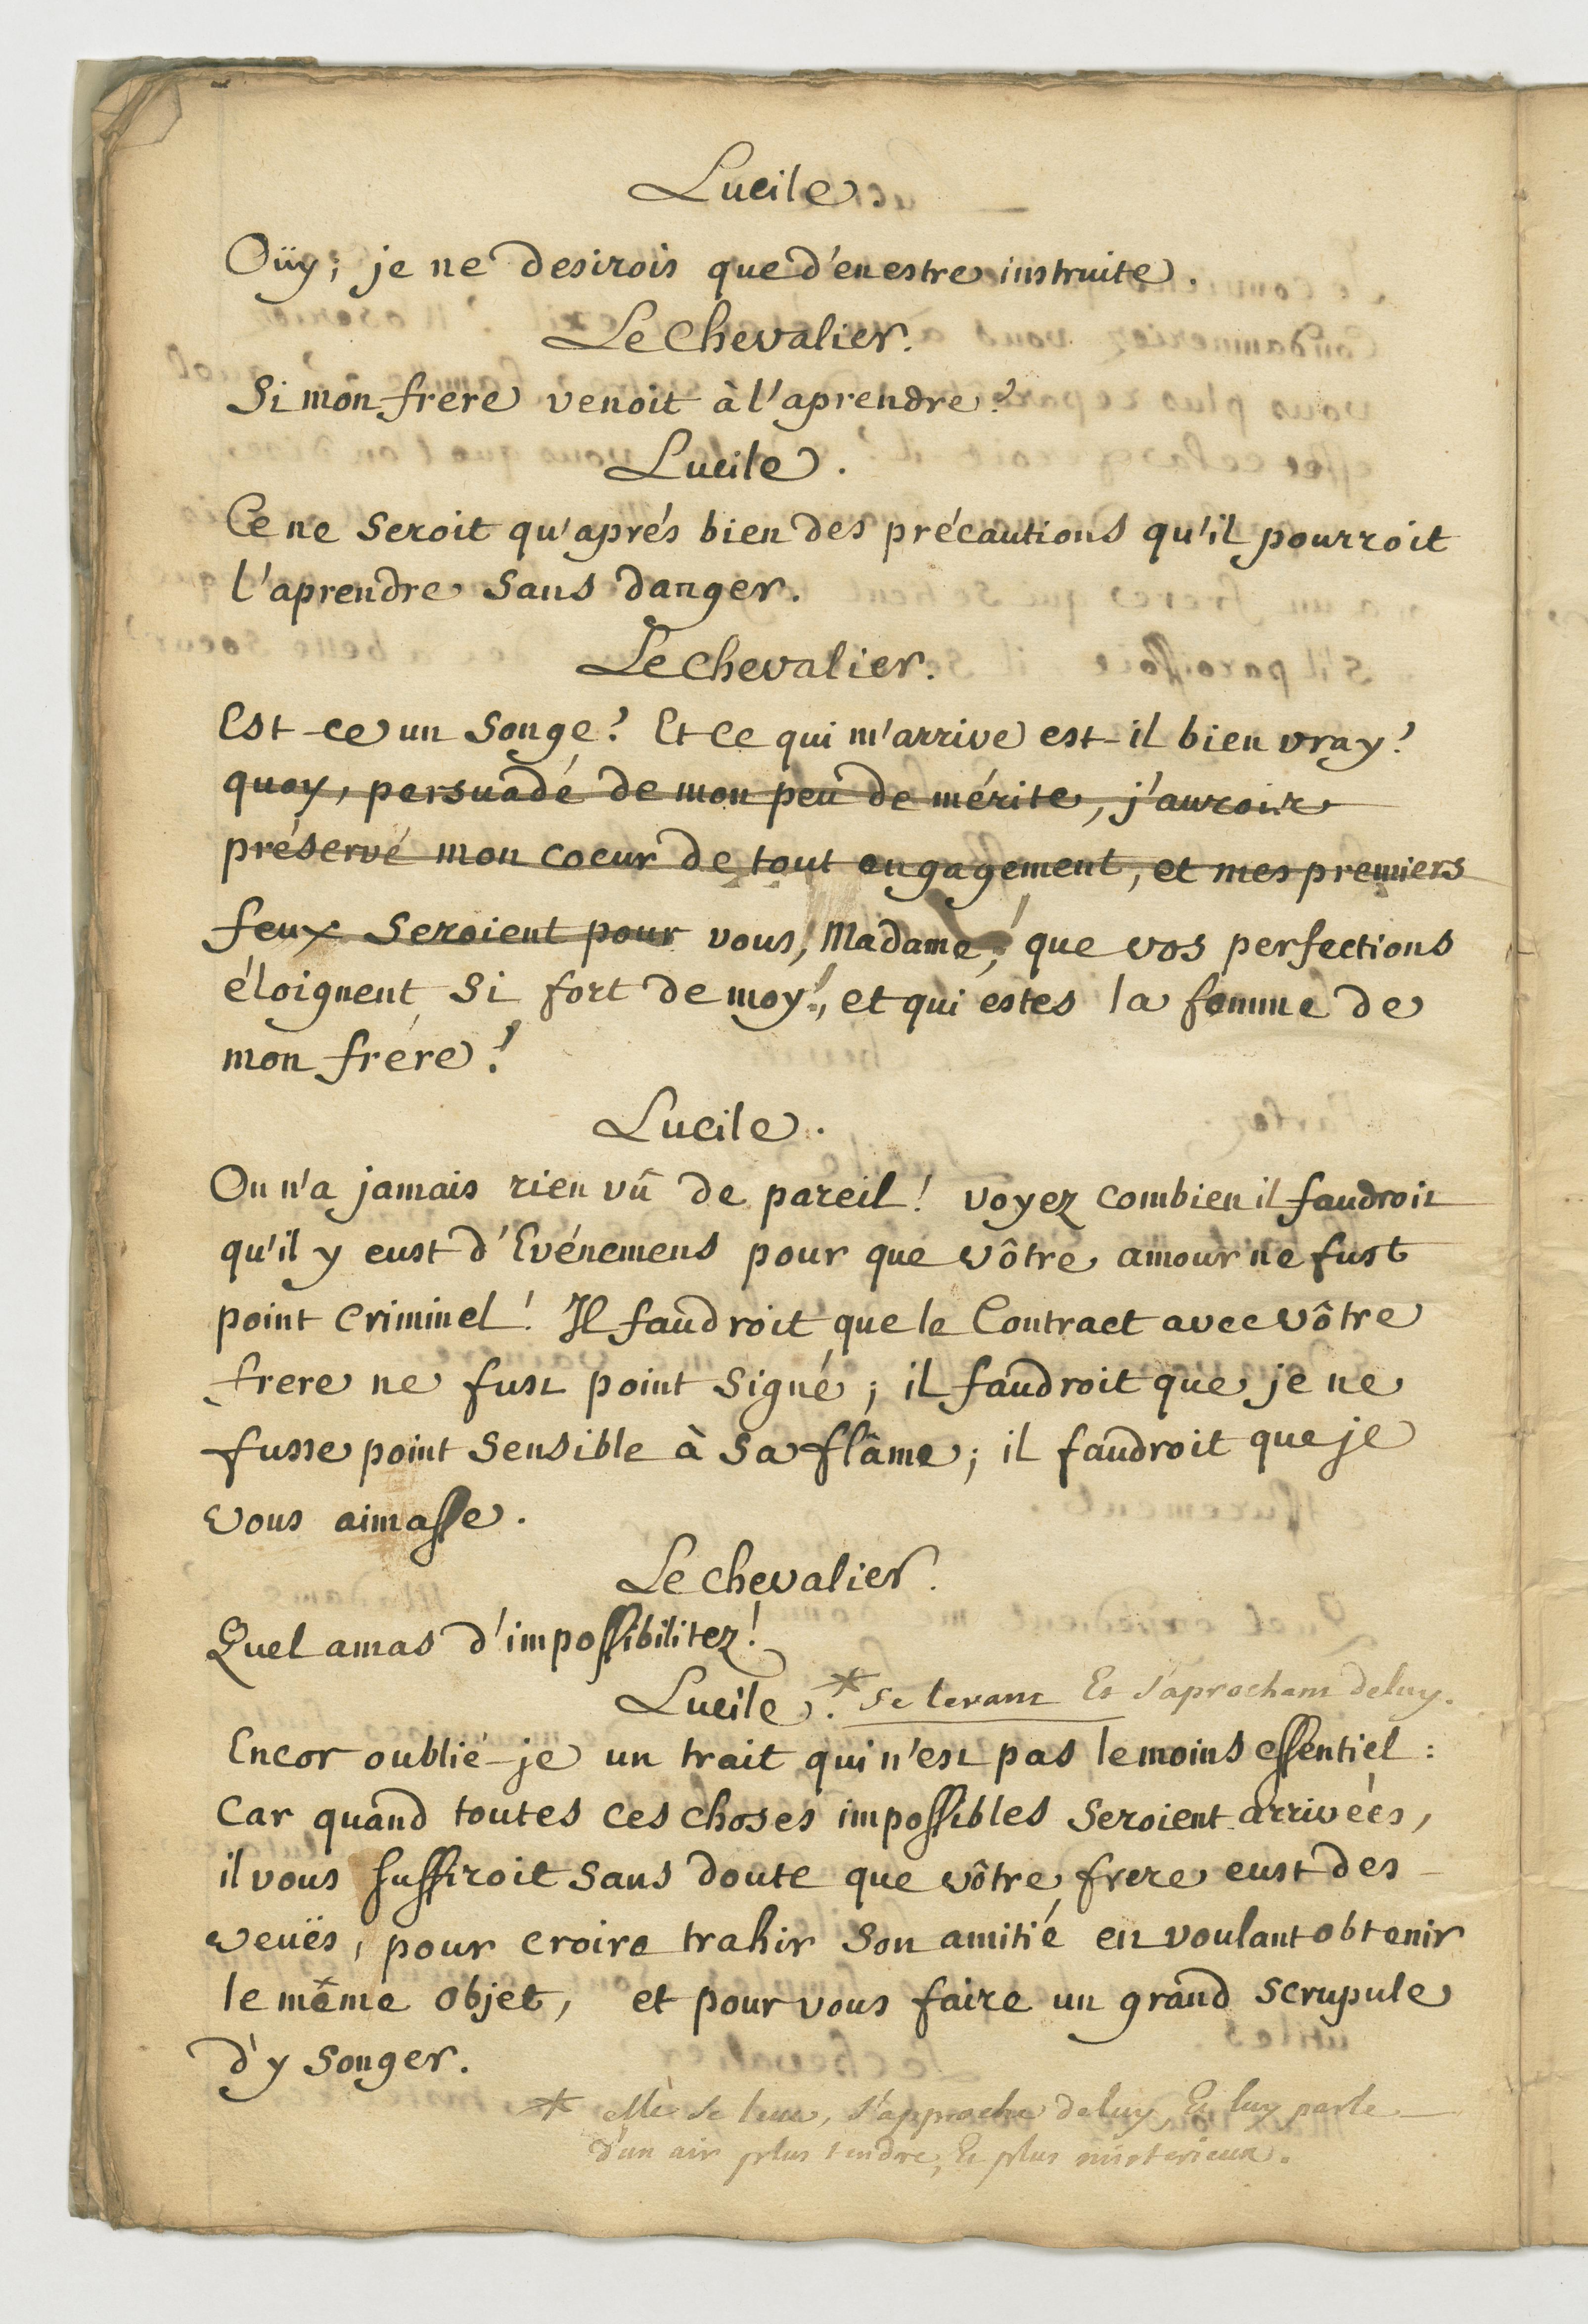 Lucile.
Oüy; je ne desirois que d'en estre instruite.
Le Chevalier.
Si mon frere venoit à l'aprendre?
Lucile.
Ce ne seroit qu'aprés bien des précautions qu'il pourroit
l'aprendre sans danger.
Le Chevalier.
Est-ce un songe? Et ce qui m'arrive est-il bien vray?
quoy, persuadé de mon peu de mérite, j'aurois
préservé mon coeur de tout engagement, et mes premiers
feux seroient pour vous, Madame,! que vos perfections
éloignent si fort de moy!, et qui estes la femme de
mon frére!
Lucile.
On n'a jamais rien vû de pareil! voyez combien il faudroit
qu'il y eust d'Evénemens pour que vôtre amour ne fust
point criminel! Il faudroit que le Contract avec vôtre
frere ne fust point signé; il faudroit que je ne
fusse point sensible à sa flâme; il faudroit que je
vous aimasse.
Le Chevalier.
Quel amas d'impossibilitez!
Lucile.* se levant Et s'aprochant de luy.
Encor oublié-je un trait qui n'est pas le moins essentiel:
Car quand toutes ces choses impossibles seroient arrivées,
il vous suffiroit sans doute que vôtre frere eust des
veuës, pour croire trahir son amitié en voulant obtenir
le même objet, et pour vous faire un grand scrupule
d'y songer.
* elle se leve, s'approche de luy Et luy parle
d'un air plus tendre, Et plus misterieux.